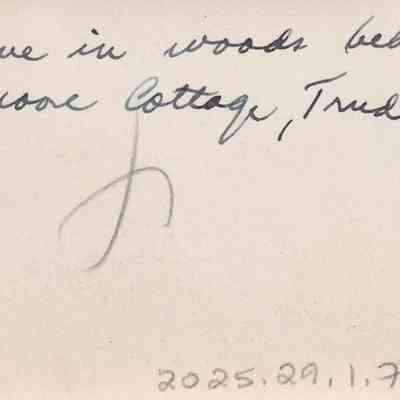 ve in woods bed
oore Cottage, Trud
2025.29.1.7